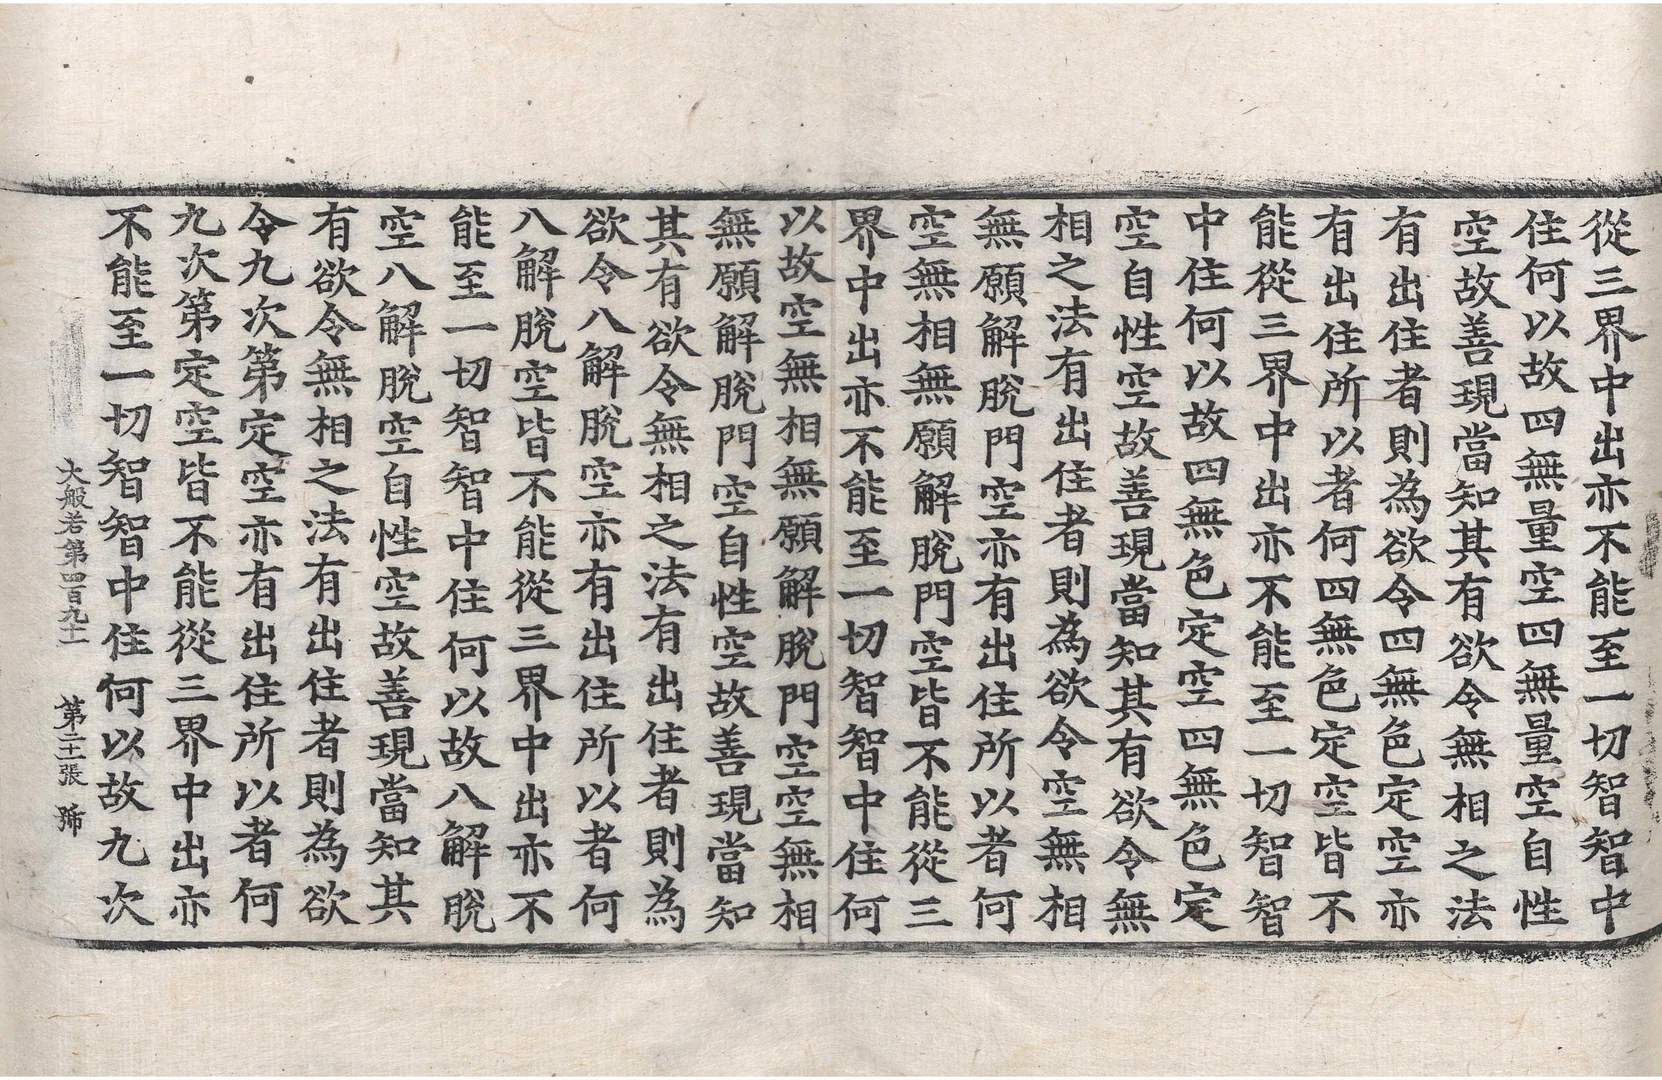 從三界中出亦不能至一切智智中
住何以故四無量空四無量空自性
空故善現當知其有欲令無相之法
有出住者則為欲令四無色定空亦
有出住所以者何四無色定空皆不
能從三界中出亦不能至一切智智
中住何以故四無色定空四無色定
空自性空故善現當知其有欲令無
相之法有出住者則為欲令空無相
無願解脫門空亦有出住所以者何
空無相無願解脫門空皆不能從三
界中出亦不能至一切智智中住何
以故空無相無願解脫門空空無相
無願解脫門空自性空故善現當知
其有欲令無相之法有出住者則為
欲令八解脫空亦有出住所以者何
八解脫空皆不能從三界中出亦不
能至一切智智中住何以故八解脫
空八解脫空自性空故善現當知其
有欲令無相之法有出住者則為欲
令九次第定空亦有出住所以者何
九次第定空皆不能從三界中出亦
不能至一切智智中住何以故九次
大般若第四百九十一 第二十張